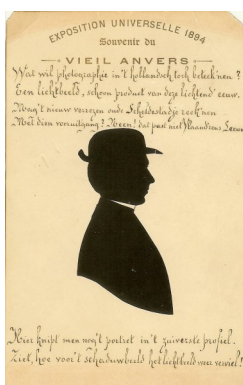 EXPOSITION UNIVERSELLE 1894
Souvenir du
VIEIL ANVERS
Wat wil photographie in't hollandsch toch beteek'nen ?
Een lichtbeeld, schoon product van deze lichtend' eeuw.
Mag't nieuw verrezen oude Scheldestadje reek'nen
Met dien vooruitgang ? Neen ! dat past niet Vlaand'rens Leeuw
Hier knipt men nog't portret in't zuiverste profiel.
Ziet, hoe voor't schaduwbeeld het lichtbeeld weer verviel !